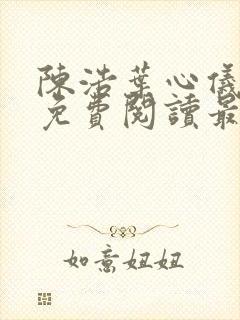 陳浩葉心儀
免費閱讀最
如意妞妞